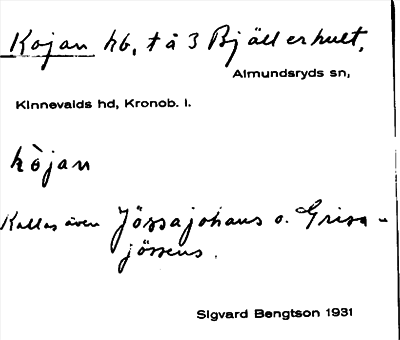 Kojan hb, t å 3 Bjällerhult,
Almundsryds sn,
Kinnevalds hd, Kronob. l.
kòjan
Kallas även Jössajohans o. Grisa-
jössens.
Sigvard Bengtson 1931